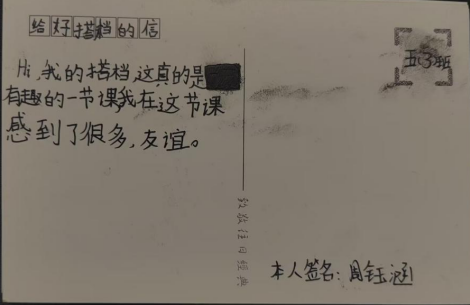 给好搭档的信
五(3)班
Hi,我的搭档,这真的是
有趣的一节课我在这节课
感到了很多,友谊。
致敬往日经典
本人签名:周钰涵